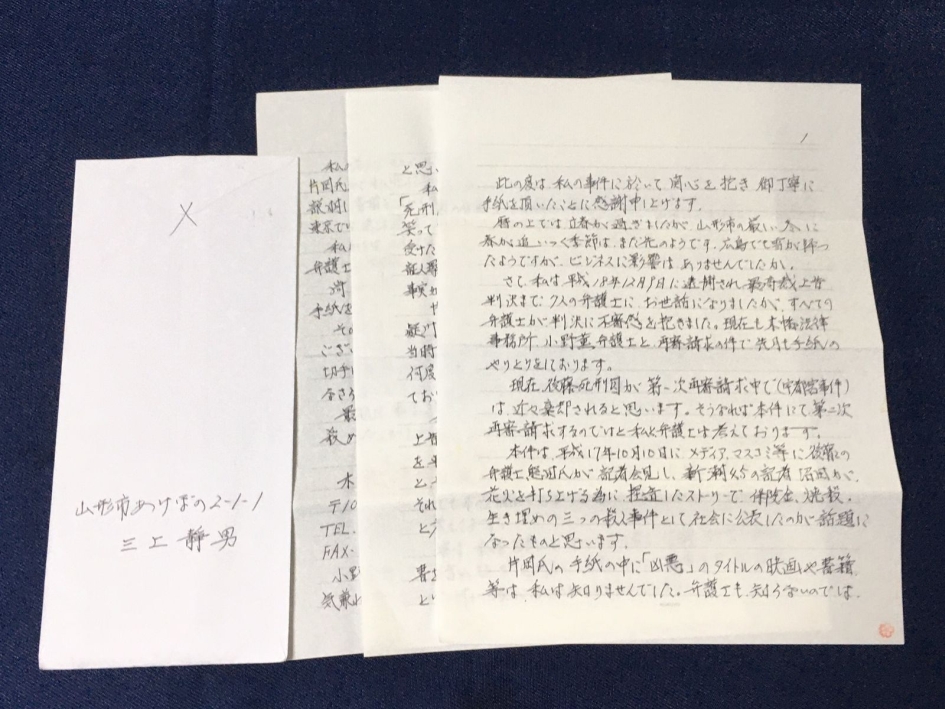 山形市あけぼの2-1-1
三上静男
〆
私の
片岡氏
説明し
東京で
私
弁護士
河
手紙を
その
ござい
切手
なさる
最
殺め
木
〒10
TEL.
FAX.
小野
気兼
と思い
私
「死刑
笑って
受けた
証人尋
事実が
や
疑い
当時
何度
てお
上告
を
と
それ
とが
書を
とい
1
此の度は、私の事件に於いて、関心を抱き、御丁寧に
手紙を頂いたことに感謝申し上げます。
暦の上では、立春が過ぎましたが、山形市の厳しい冬に
春が追いつく季節は、まだ先のようです。広島でも雪が降っ
たようですが、ビジネスに影響はありませんでしたか。
さて、私は平成18年12月9日に逮捕され、最高裁上告
判決まで、7人の弁護士にお世話になりましたが、すべての
弁護士が判決に不審感を抱きました。現在も本橋法律
事務所、小野薫弁護士と、再審請求の件で先月も手紙の
やりとりをしております。
現在、後藤死刑囚が第一次再審請求中で(宇都宮事件)
は、近々棄却されると思います。そうなれば本件にて第二次
再審請求するのではと私と弁護士は考えております。
本件は、平成17年10月10日に、メディア、マスコミ等に後藤の
弁護士、熊田氏が記者会見し、新潮45の記者
花火を打ち上げる為に、捏造したストーリーで、保険金、焼殺、
生き埋めの三つの殺人事件として社会に公表したのが話題に
なったものと思います。
片岡氏の手紙の中に「凶悪」のタイトルの映画や書籍
等は、私は知りませんでした。弁護士も知らないのでは